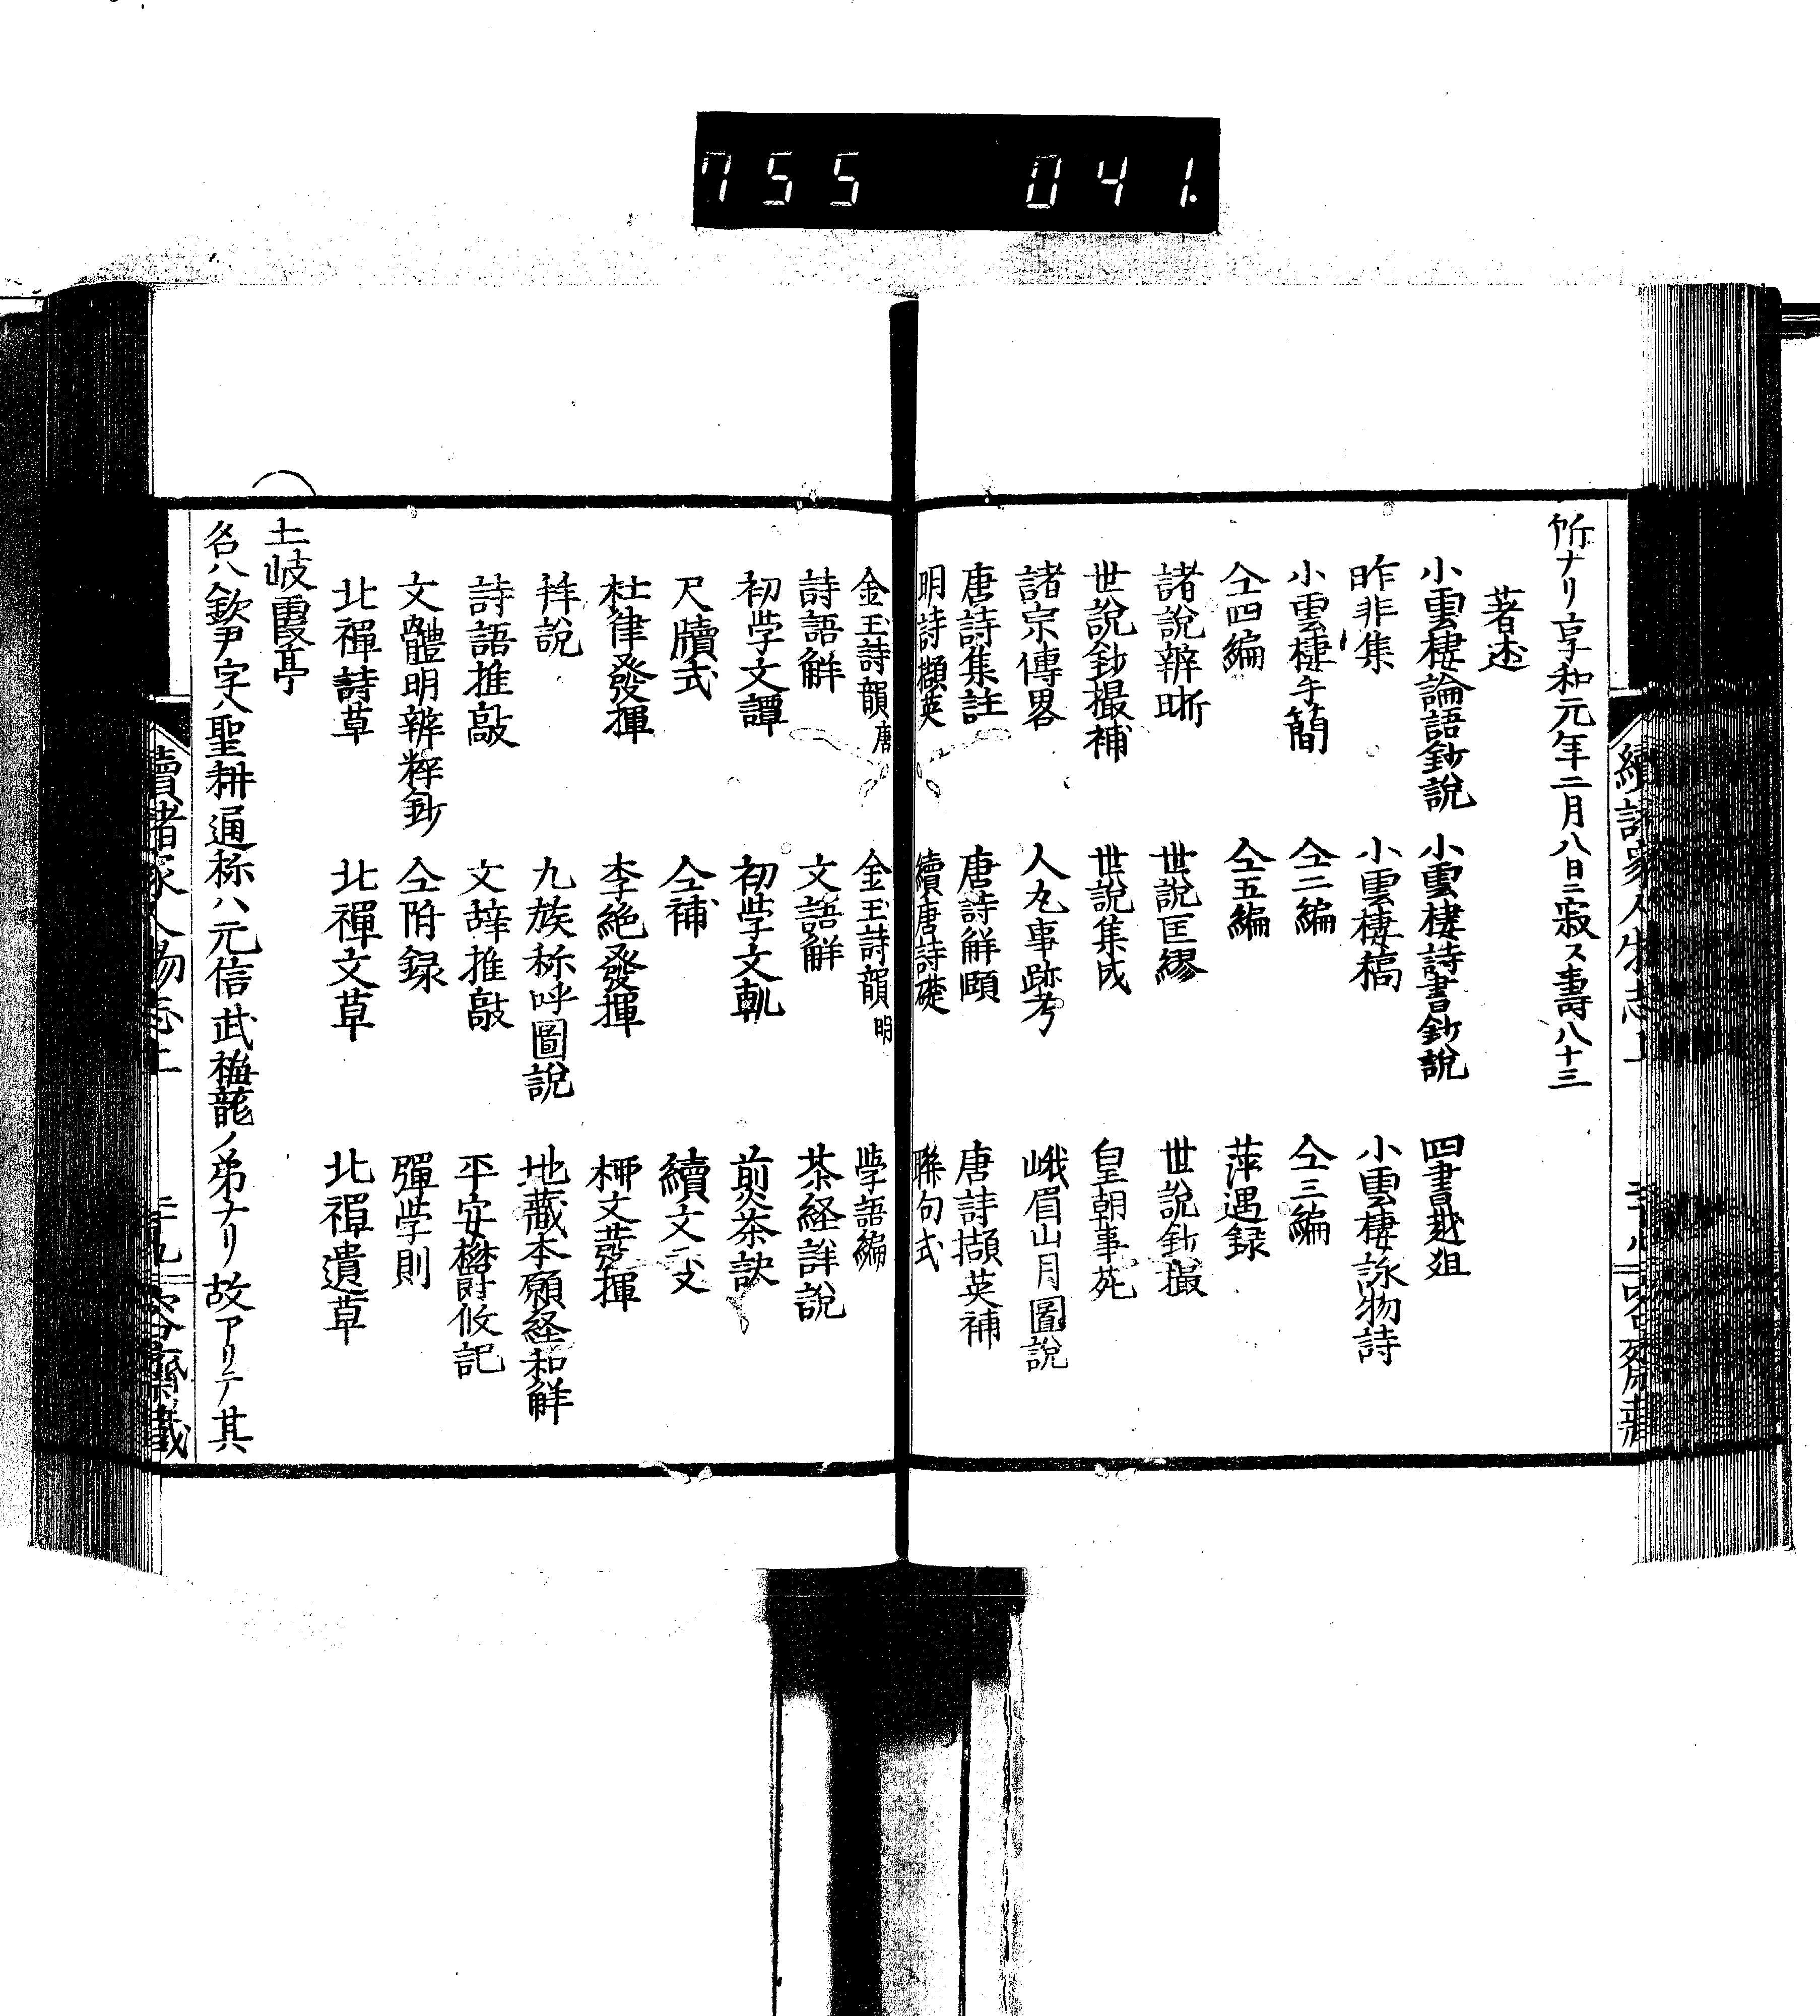 755 041.
所ナリ享和元年二月八日ニ寂ス壽八十三
著述
小雲棲論語鈔説 小雲棲詩書鈔説 四書越爼
昨非集 小雲棲稿 小雲棲詠物詩
小雲棲手簡 仝二編 仝三編
仝四編 仝五編 萍遇録
諸說辨晰 世說匡繆 世說鈔撮
世說鈔撮補 世說集成 皇朝事苑
諸宗傳畧 人丸事跡考 峨眉山月圖說
唐詩集註 唐詩觧頤 唐詩擷英補
明詩擷英 續唐詩礎 聯句式
金玉詩韻唐 金玉詩韻明 學語編
詩語觧 文語觧 茶経詳說
初学文譚 初学文軌 煎茶訣
尺牘式 仝補 續文変
杜律發揮 李絶發揮 柳文發揮
拜說 九族称呼圖說 地藏本願経和觧
詩語推敲 文辞推敲 平安欝攸記
文體明辨粹鈔 仝附録 禪学則
北禪詩草 北禪文草 北禪遺草
土岐霞亭
名ハ欽尹字ハ聖耕通称ハ元信武梅龍ノ弟ナリ故アリテ其
續諸家人物志上